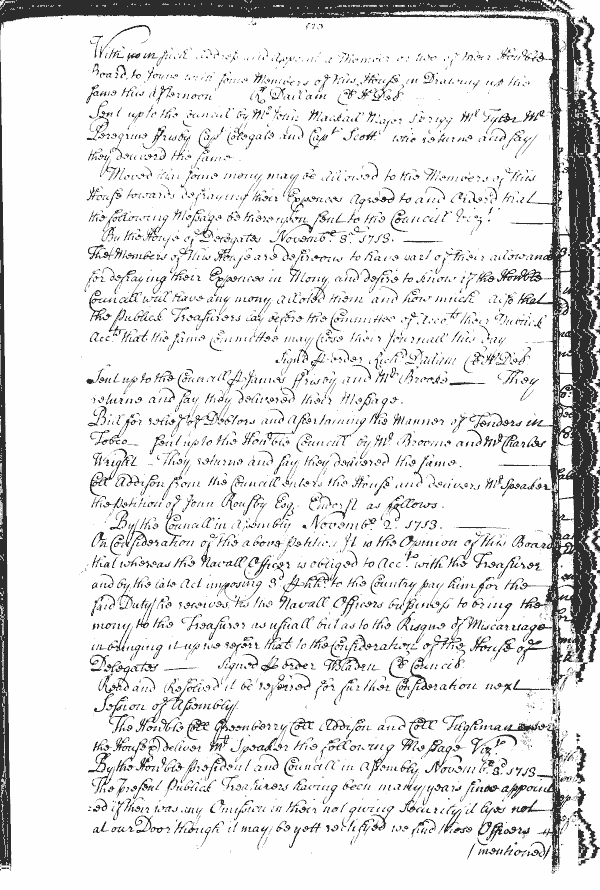 With us in such address and appoint a Member or two of their Honble
Board to Joyne with some Members of this House in Drawing up the
same this afternoon R Dallam Cl H Deb
Sent up to the Councill by Mr John Mackall Major Sprigg Mr Tyler Mr
Peregrine Frisby Capt Colegate and Capt Scott who returne and say
they deliverd the same.
Moved that some mony may be allowed to the Members of this
House towards defraying their Expences Agreed to and Ordered that
the following Message be thereupon sent to the Councill Vizt
By the House of Delegates Novembr 3d 1713.
The Members of this House are desireous to have part of their allowance
for defraying their Expences in Mony and desire to know if the Honble
Councill will have any mony alloted them and how much also that
the Publick Treasurers lay before the Committee of Accots their Publick
Accts that the same Committee may close their Journall this day
Signd p order Richd Dallam Cl H Deb
Sent up to the Councill p James Frisby and Mr Brooke They
returne and say they delivered their Message.
Bill for relief of Debtors and ascertaining the Manner of Tenders in
Tobco sent up to the Honble Councill by Mr Broome and Mr Charles
Wright They returne and say they delivered the same.
Coll Addison from the Councill enters the House and delivers Mr Speaker
the Petition of John Rousby Esq. Endorst as follows.
By the Councill in Assembly Novembr 2d 1713.
On Consideration of the above Petition It is the Opinion of this Board
that whereas the Navall Officer is obliged to Acct with the Treasurer
and by the late Act imposing 3d p hhd to the Country pay him for the
said Duty he receives tis the Navall Officers business to bring the
mony to the Treasurer as usuall but as to the Risque of Miscarriage
in bringing it up we referr that to the Consideration of the House of
Delegates Signed p order W Bladen Cl Council
Read and Resolved it be referred for further Consideration next
Session of Assembly
The Honble Coll Greenberry Coll Addison and Coll Tilghman enter
the House & deliver Mr Speaker the following Message Vizt
By the Honble President and Councill in Assembly Novembr 3d 1713
The present Publick Treasurers having been many years since appoint
=ed if their was any Omission in their not giving Security it lyes not
at our Door though it may be yett rectifyed we find those Officers
(mentioned)